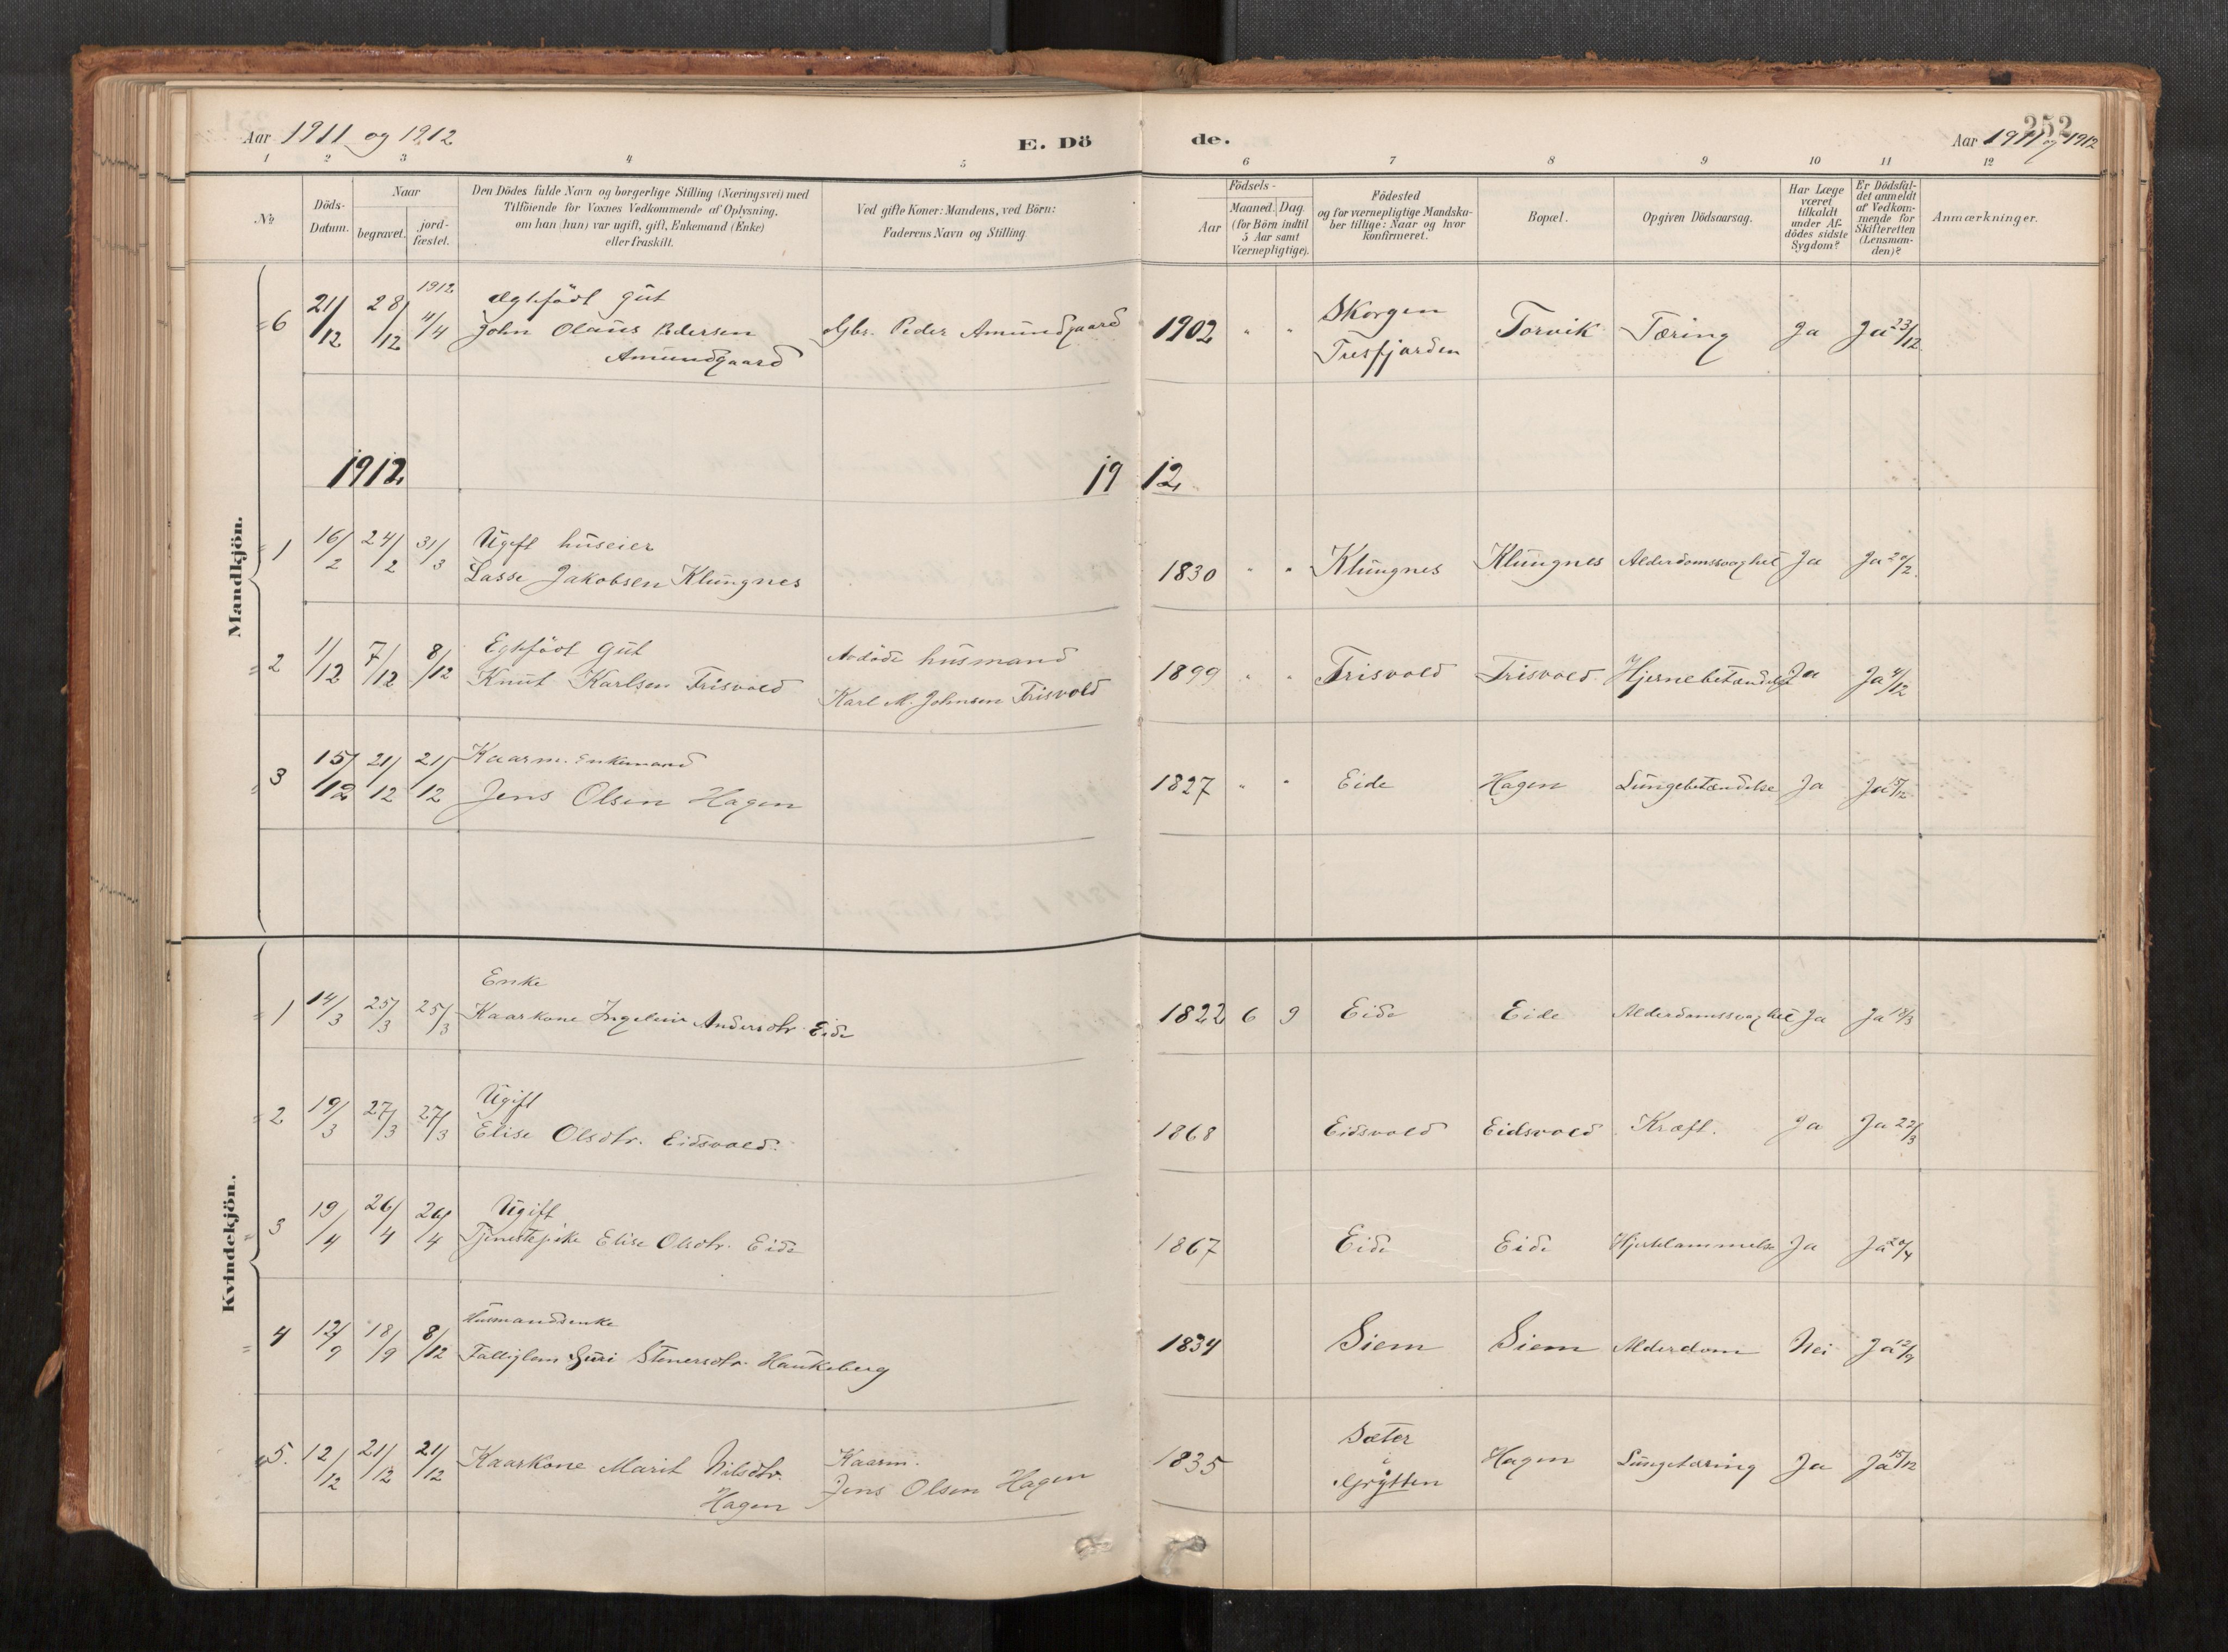 Aar 1911 og 1912
E. Dö
de.
252
Aar 1911 og 1912
1 2 3 4 5 6 7 8 9 10 11 12
№
Döds-
Datum.
Naar
begravet.
jord-
fæstet.
Den Dödes fulde Navn og borgerlige Stilling (Næringsvei) med
Tilföiende for Voxnes Vedkommende af Oplysning,
om han (hun) var ugift, gift, Enkemand (Enke)
eller fraskilt.
Ved gifte Koner: Mandens, ved Börn:
Faderens Navn og Stilling
Födsels-
Aar
Maaned. Dag.
(for Börn indtil
5 Aar samt
Værnepligtige).
Födested
og for værnepligtige Mandska-
ber tillige: Naar og hvor
konfirmeret.
Bopæl.
Opgiven Dödsaarsag.
Har Læge
været
tilkaldt
under Af-
dödes sidste
Sygdom?
Er Dödsfal-
det anmeldt
af Vedkom-
mende for
Skifteretten
(Lensman-
den)?
Anmærkninger.
Mandkjön.
6 21/12 28/12 1912 4/4 Ægtefödt gut
John Olaus Pedersen
Amundgaard
Gbr. Peder Amundgaard
1902 " " Skorgen
Tresfjorden
Torvik Tæring Ja Ja 23/12
1912
1912
1 16/2 24/2 31/3 Ugift huseier
Lasse Jakobsen Klungnes
1830 " " Klungnes Klungnes Alderdomssvaghet Ja Ja 20/2
2 1/12 7/12 8/12 Egtefödt gut
Knut Karlsen Frisvold
Avdöde husmand
Karl M. Johnsen Frisvold
1899 " " Frisvold Frisvold Hjernebetændelse Ja Ja 4/12
3 15/12 21/12 21/12 Kaarm. Enkemand
Jens Olsen Hagen
1827 " " Eide Hagen Lungebetændelse Ja Ja
Kvindekjön.
1 14/3 25/3 25/3 Enke
Kaarkone Ingeleiv Andersdtr. Eide
1822 6 9 Eide Eide Alderdomssvaghet Ja Ja 18/3
2 19/3 27/3 27/3 Ugift
Elise Olsdtr. Eidsvold.
1868 Eidsvold Eidsvold Kræft. Ja Ja 22/3
3 19/4 26/4 26/4 Ugift
Tjenestepike Elise Olsdtr. Eide
1867 Eide Eide Hjertelammelse Ja Ja 20/4
4 12/9 18/9 8/12 Husmandsenke
Fattiglem Guri Stenersdtr. Haukeberg
1834 Siem Siem Alderdom Nei Ja 12/9
5. 12/12 21/12 21/12 Kaarkone Marit Nilsdtr.
Hagen
Kaarm.
Jens Olsen Hagen
1835 Sæter
i
Grytten
Hagen Lungetæring Ja Ja 15/12